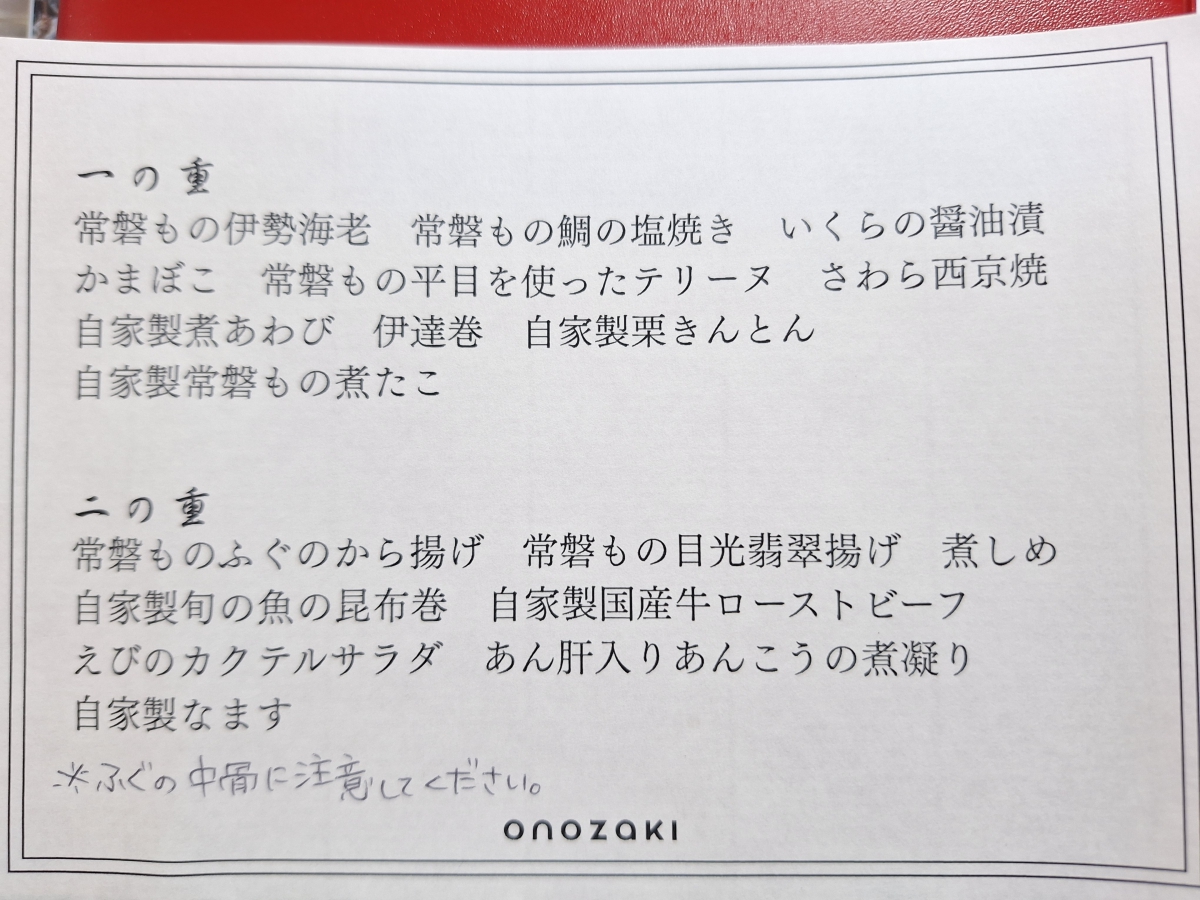 一の重
常磐もの伊勢海老　常磐もの鯛の塩焼き　いくらの醤油漬
かまぼこ　常磐もの平目を使ったテリーヌ　さわら西京焼
自家製煮あわび　伊達巻　自家製栗きんとん
自家製常磐もの煮たこ
二の重
常磐ものふぐのから揚げ　常磐もの目光翡翠揚げ　煮しめ
自家製旬の魚の昆布巻　自家製国産牛ローストビーフ
えびのカクテルサラダ　あん肝入りあんこうの煮凝り
自家製なます
※ふぐの中骨に注意してください。
onozaki